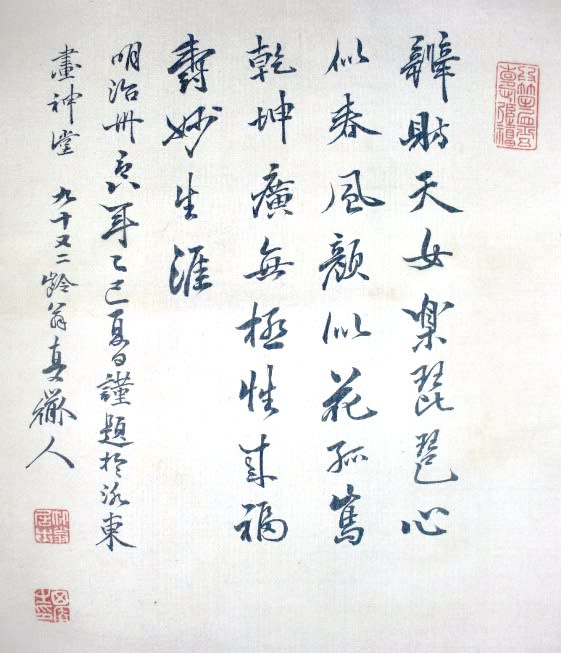 辨財天女楽琵琶心
似春風顔似花孤
乾坤廣無極性來福
壽妙生涯
明治卅八年乙巳夏日謹題於洛東
畫神堂 九十又二齡翁真人